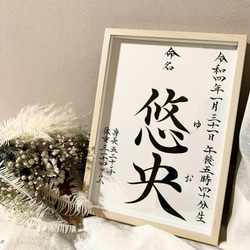 令和四年一月三十一日 午後五時四十分生
命名
悠央
ゆ お
身長五十
体重三千